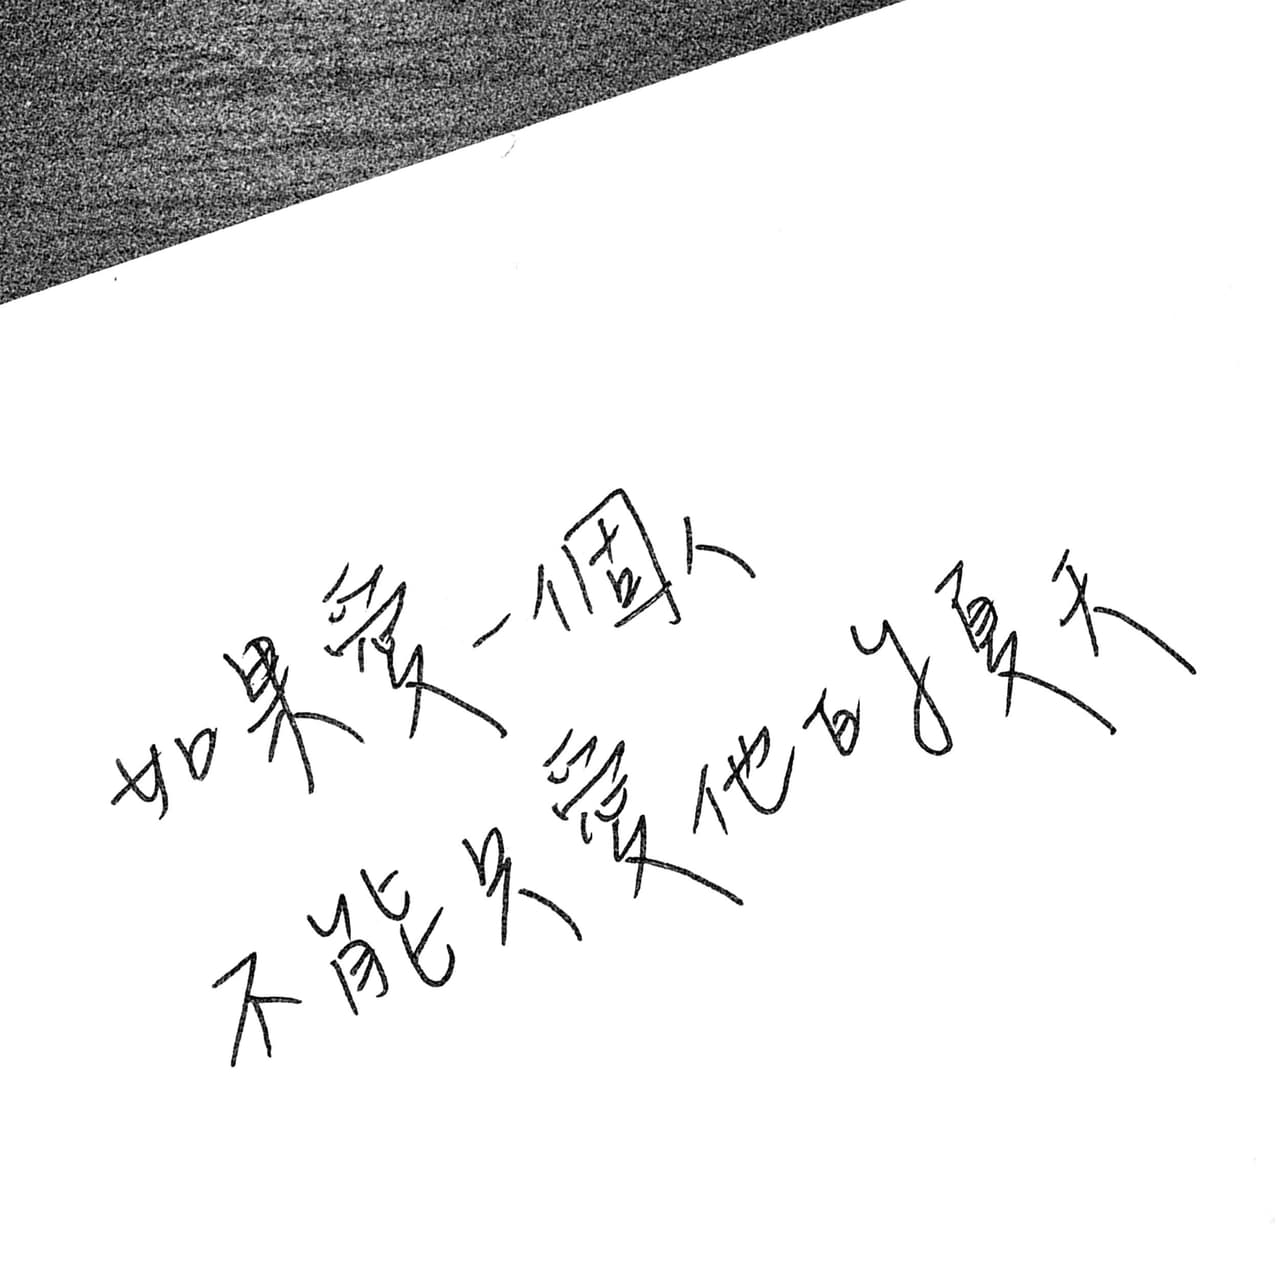 如果愛一個人
不能只愛他的夏天